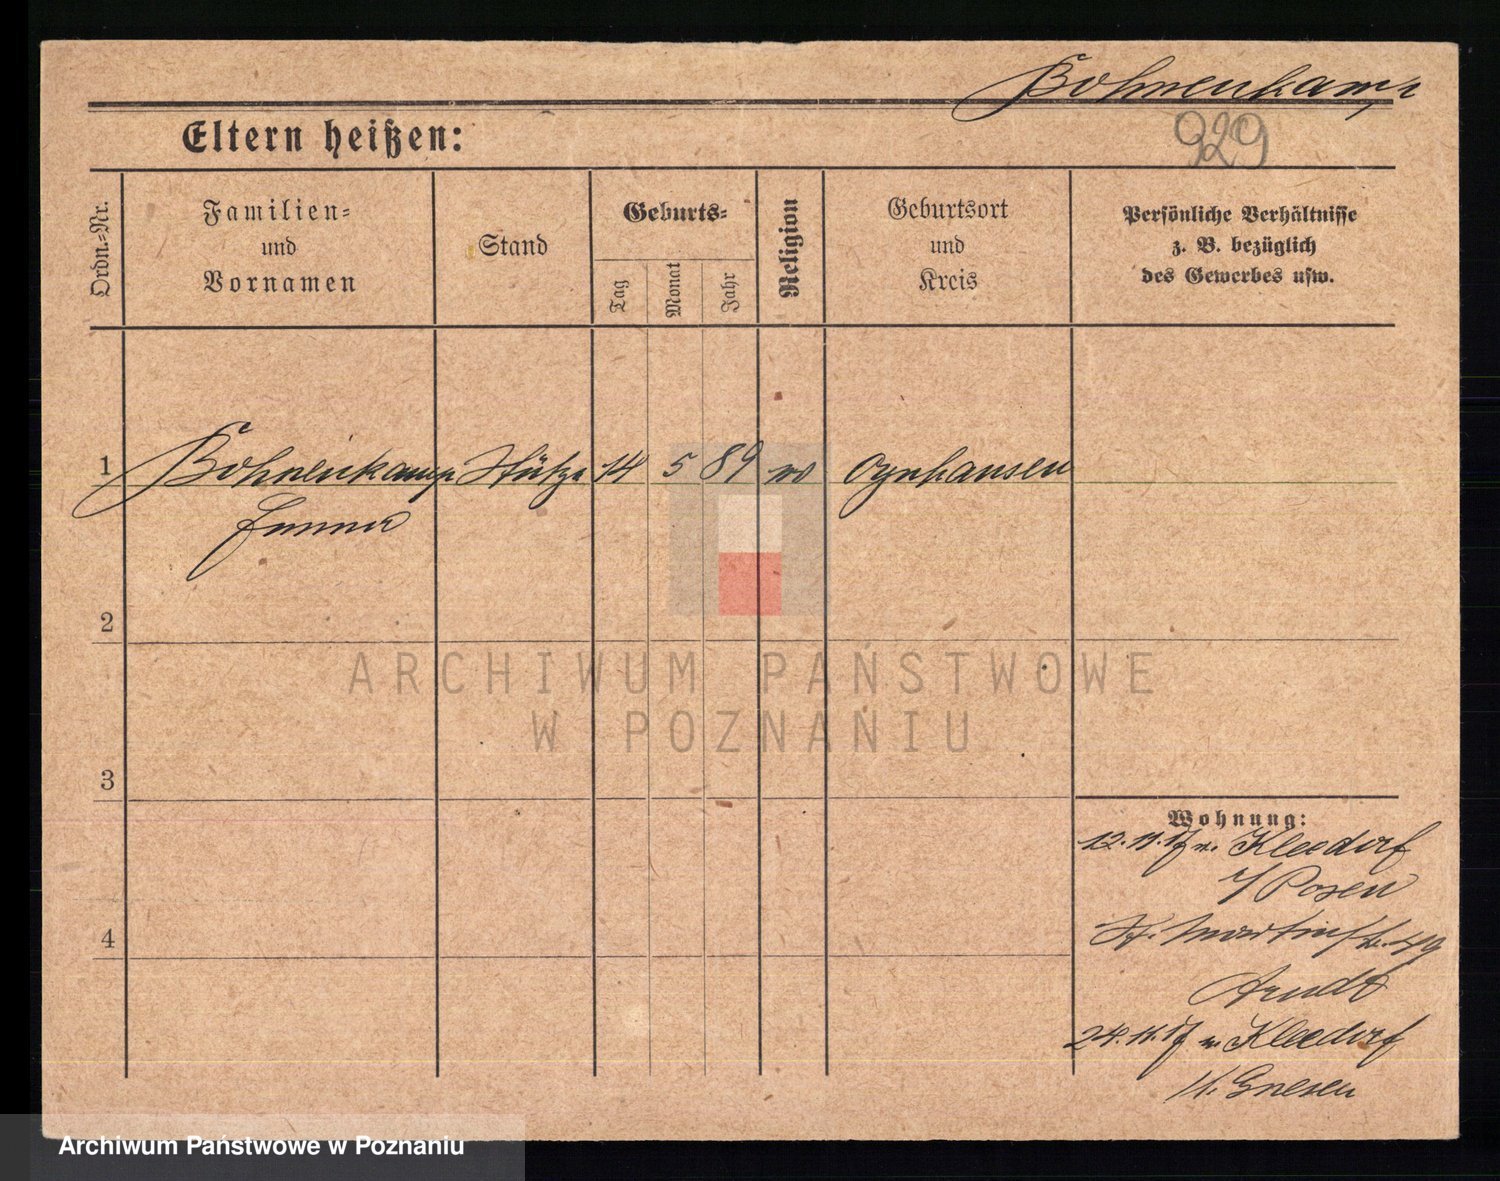 Bohnenkamp
929
Eltern heißen:
Ordn.-Nr.
Familien-
und
Vornamen
Stand
Geburts-
Tag
Monat
Jahr
Religion
Geburtsort
und
Kreis
Persönliche Verhältnisse
z. B. bezüglich
des Gewerbes usw.
1 Bohnenkamp Stütze 14 5 89 Oynhausen
2
3
4
Wohnung:
12.11.17 v. Kleedorf
Posen
St. Martinstr. 49
Arndt
24.11.17 n. Kleedorf
Kr. Gnesen
ARCHIWUM PAŃSTWOWE
W POZNANIU
Archiwum Państwowe w Poznaniu